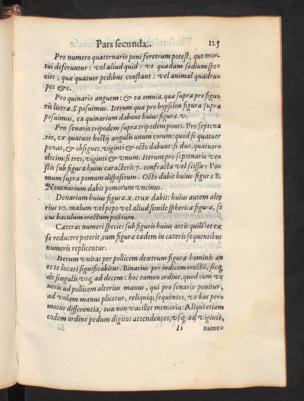 Pars secunda. 125
Pro numero quaternario poni feretrum potest, quo mor
tui deferuntur: vel aliud quid: ve quadam sedium spe
cies, quæ quatuor pedibus constant: vel animal quadru
pes &c.
Pro quinario anguem: & ea omnia, quæ supra pro figu
ris literæ S. posuimus. Iterum quæ pro hypsilon figura supra
posuimus, ea quinarium dabunt huius figuræ v.
Pro senario tripodem supra tripodem pones. Pro septena
rio, ex quatuor lociis anguli unum
ponas, & obsignes, viginti & octo dabunt: si duo, quatuor
decim: si tres, viginti & unum. Iterum pro septenario ve
stis sub figura huius caracteris 7. confracta vel scissa:
num supra pomum dispositum. Octo dabit huius figuræ 8.
Nouenarium dabit pomorum vncinus.
Denarium huius figuræ x. crux dabit: huius autem alte
rius 10. malum vel pepo vel aliud simile sphæricæ figuræ, se
cus baculum erectum positum.
Cæteras numeri species sub figuris huius artis quilibet ex
se reducere poterit, cum figuræ eædem in cæteris sequentibus
numeris replicentur.
Iterum vnitas per pollicem dextrum figuræ hominis an
te te locati significabitur. Binarius per indicem erectū, sicq́;
de singulis vsq; ad decem: hoc tamen ordine, quod cum ve
neris ad pollicem alterius manus, qui pro senario ponitur,
ad volam manus plicetur, reliquiq; sequentes, vt hac peru
motus differentia, tua non vacillet memoria: Aliqui etiam
eodem ordine pedum digitos attendentes, vsq; ad viginti,
Ii numero